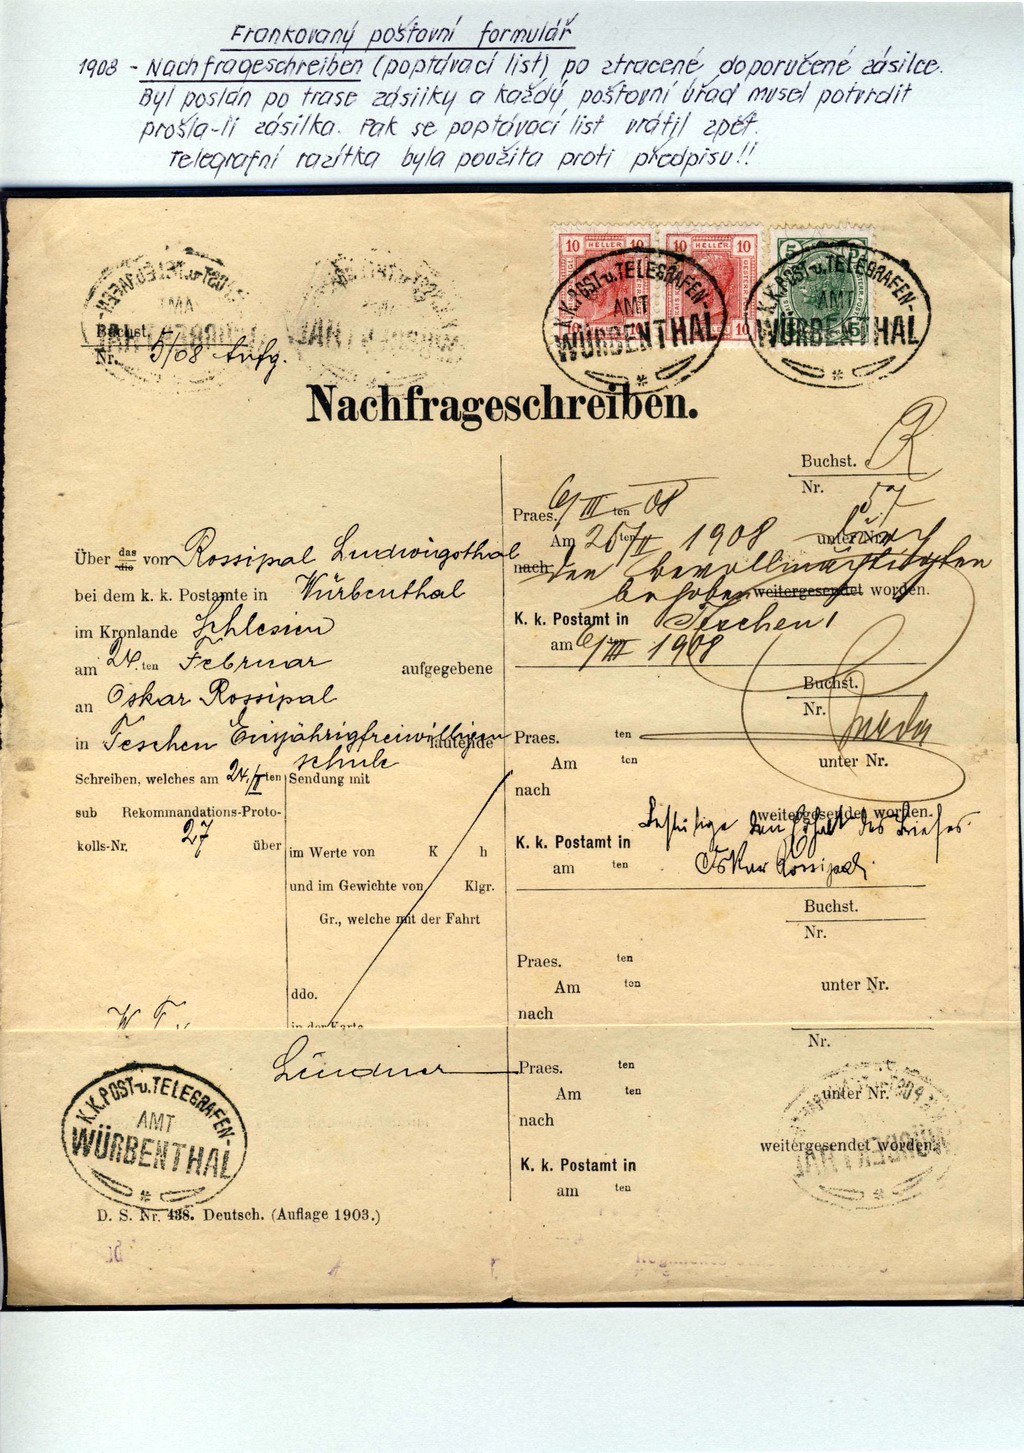 Frankovaný poštovní formulář
1908 - Nachfrageschreiben (poptávací list) po ztracené doporučené zásilce.
Byl poslán po trase zásilky a každý poštovní úřad musel potvrdit
prošla-li zásilka. Pak se poptávací list vrátil zpět.
Telegrafní razítka byla použita proti předpisu!!
10 HELLER 10
10 HELLER 10
5
K.K. POST-u. TELEGRAFEN-
AMT
WÜRBENTHAL
K.K. POST-u. TELEGRAFEN-
AMT
WÜRBENTHAL
Buchst.
Nr. 5/08 Aufg.
Nachfrageschreiben.
Über das die von Rossipal Ludwigsthal
bei dem k. k. Postamte in Würbenthal
im Kronlande Schlesien
am 24. ten Februar aufgegebene
an Oskar Rossipal
in Teschen Einjährigfreiwilligen
schule lautende
Schreiben, welches am 24./II ten
sub Rekommandations-Proto-
kolls-Nr. 27 über
Sendung mit
im Werte von K h
und im Gewichte von Klgr.
Gr., welche mit der Fahrt
ddo.
in der Karte
Lindner
K.K. POST-u. TELEGRAFEN-
AMT
WÜRBENTHAL
D. S. Nr. 438. Deutsch. (Auflage 1903.)
Buchst. R
Nr. 57
Praes. 6/III ten 08
Am 25/II ten 1908 unter Nr.
nach den bevollmächtigten
behoben weitergesendet worden.
K. k. Postamt in Teschen 1
am 6/III 1908
Buchst.
Nr.
Praes. ten
Am ten unter Nr.
nach
weitergesendet worden.
Bestätige den Erhalt des Briefes.
K. k. Postamt in
Oskar Rossipal
am ten
Buchst.
Nr.
Praes. ten
Am ten unter Nr.
nach
Nr.
Praes. ten
Am ten unter Nr.
nach
weitergesendet worden.
K. k. Postamt in
am ten